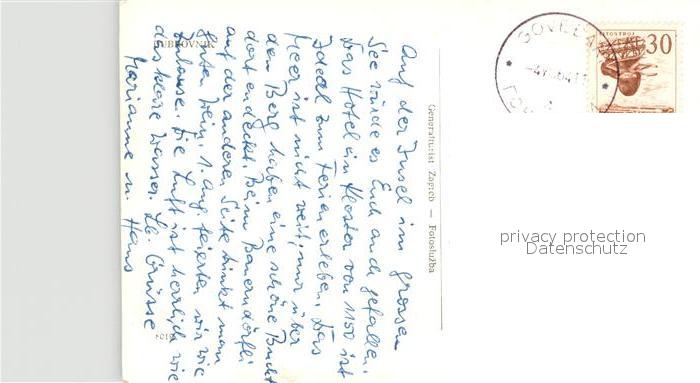 DUBROVNIK
Auf der Insel im grossen
See würde es Euch auch gefallen.
Das Hotel im Kloster von 1150 ist
Ideal zum Ferien erleben. Das
Meer ist nicht weit, nur über
den Berg haben eine schöne Bucht
dort endeckt. Beim Bauerndörfli
auf der anderen Seite trinkt man
guten Wein. 1. Aug. feierten wir wie
zuhause. Die Luft ist herrlich wie
das klare Wasser. Lb. Grüsse
Marianne u. Hans
Generalturist Zagreb — Fotoslužba
LITOSTROJ
30
privacy protection
Datenschutz